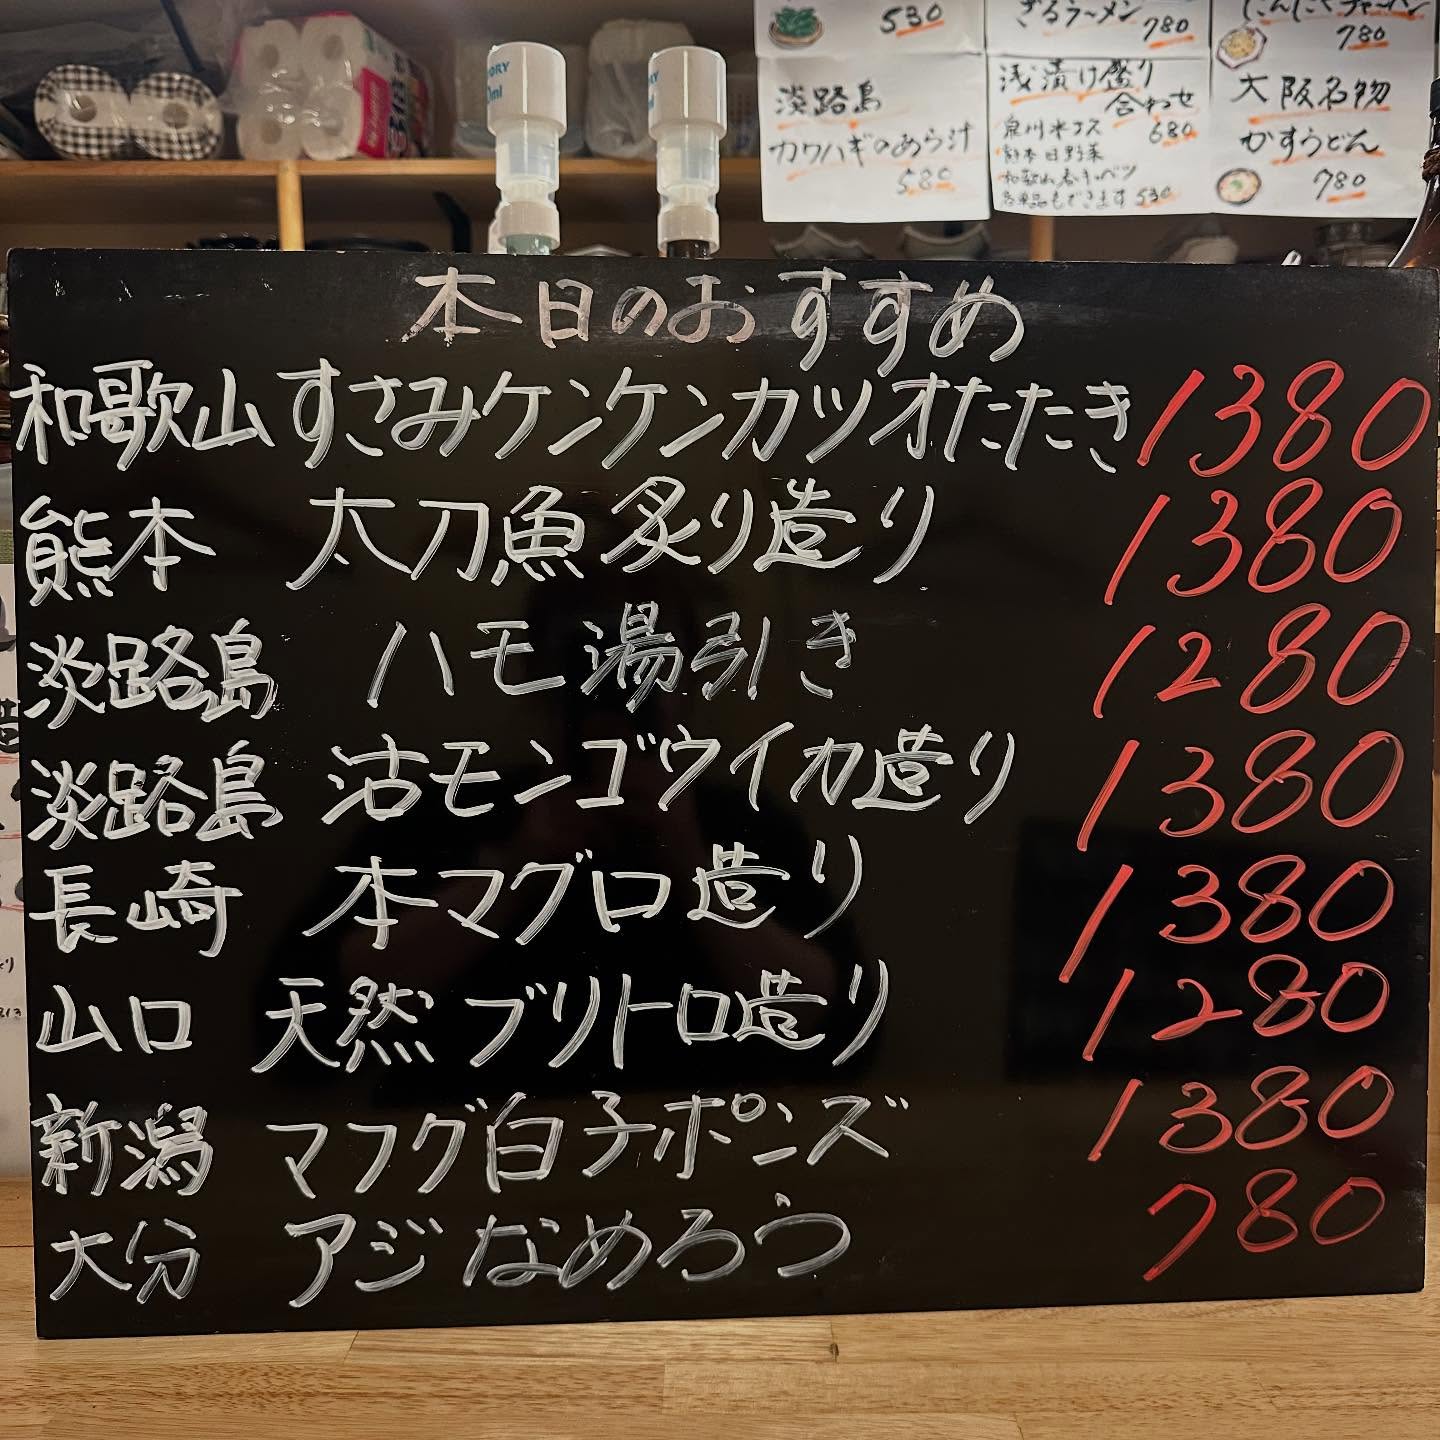 530
ぎろラーメン
780
780
淡路島
カワハギのあら汁
580
浅漬け盛り
合わせ
泉州水ナス 680
熊本日野菜
和歌山春キャベツ
各単品もできます 530
大阪名物
かすうどん
780
本日のおすすめ
和歌山 すさみケンケンカツオたたき 1380
熊本 太刀魚炙り造り 1380
淡路島 ハモ湯引き 1280
淡路島 活モンゴウイカ造り 1380
長崎 本マグロ造り 1380
山口 天然ブリトロ造り 1280
新潟 マフグ白子ポンズ 1380
大分 アジなめろう 780